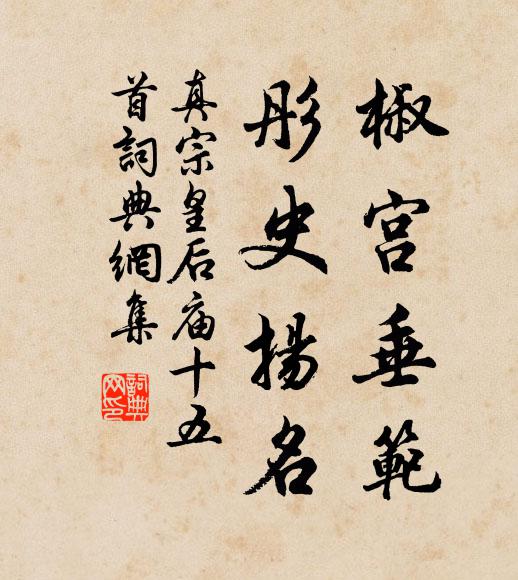 椒宫垂範
彤史揚名
真宗皇后庙十五
首詞典網集
詞典网印